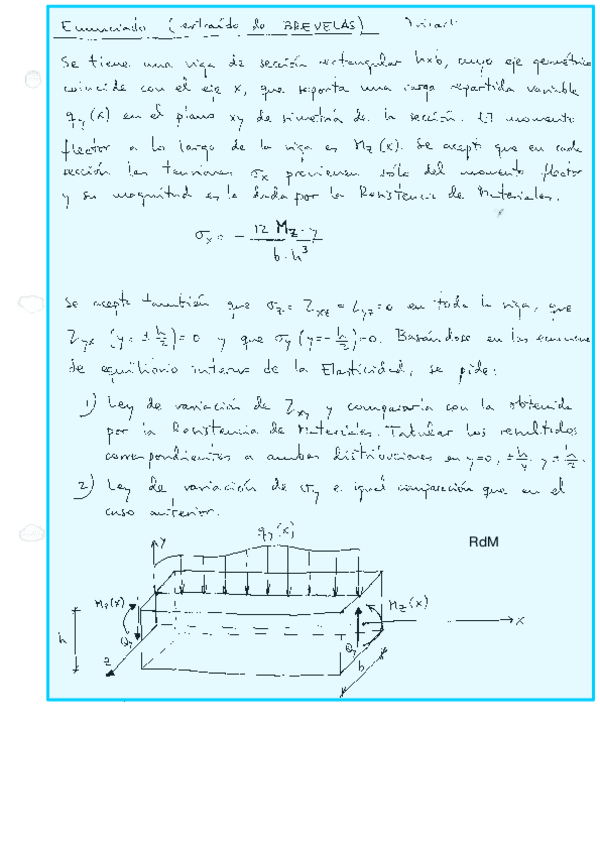 Enunciado (extraído de BREVELAS)
Se tiene una viga de sección rectangular h×b, cuyo eje geométrico
coincide con el eje x, que soporta una carga repartida variable
q_y(x) en el plano xy de simetría de la sección. El momento
flector a lo largo de la viga es M_z(x). Se acepta que en cada
sección las tensiones σ_x provienen sólo del momento flector
y su magnitud es la dada por la Resistencia de Materiales.
σ_x = - 12 M_z·y / b·h³
Se acepta también que σ_z = τ_xz = τ_yz = 0 en toda la viga, que
τ_yx (y = ± h/2) = 0 y que σ_y (y = - h/2) = 0. Basándose en las ecuaciones
de equilibrio interno de la Elasticidad, se pide:
1) Ley de variación de τ_xy y compararla con la obtenida
por la Resistencia de Materiales. Tabular los resultados
correspondientes a ambas distribuciones en y=0, ± h/4, y ± h/2.
2) Ley de variación de σ_y e igual comparación que en el
caso anterior.
q_y(x)
y
RdM
M_z(x)
M_z(x)
x
h
Q_y
Q_y
z
b